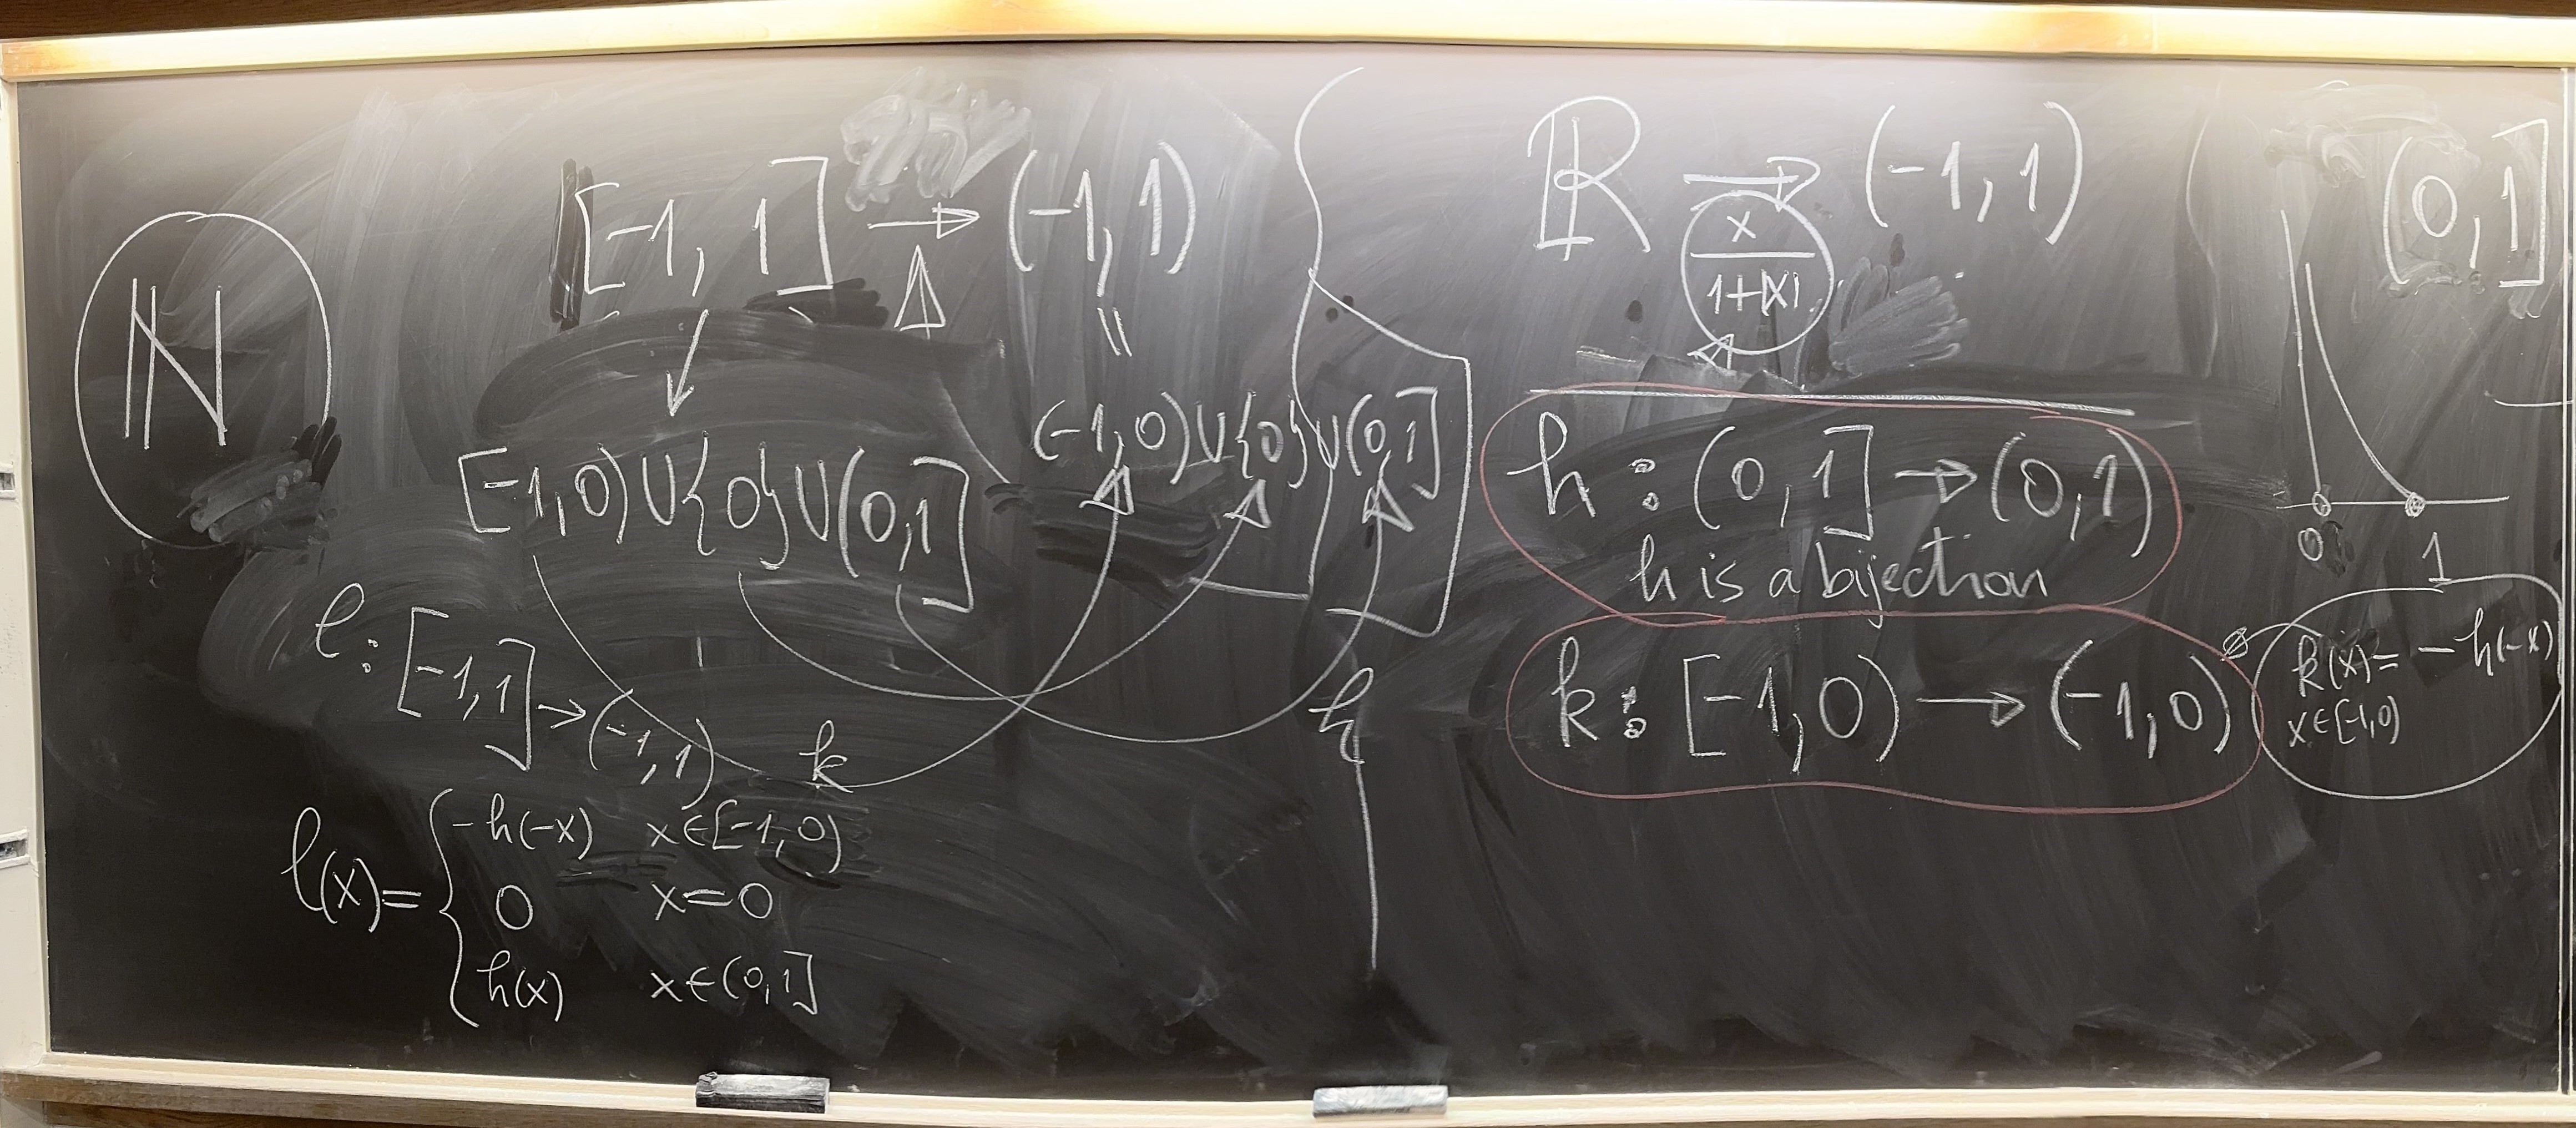 ℕ
[-1, 1] → (-1, 1)
=
[-1,0) ∪ {0} ∪ (0,1]
(-1,0) ∪ {0} ∪ (0,1]
l : [-1,1] → (-1,1)
k
h
l(x) = { -h(-x) x∈[-1,0)
0 x=0
h(x) x∈(0,1]
ℝ → (-1,1)
x/(1+|x|)
h : (0,1] → (0,1)
h is a bijection
k : [-1,0) → (-1,0)
(0,1]
0 1
k(x) = -h(-x)
x∈[-1,0)